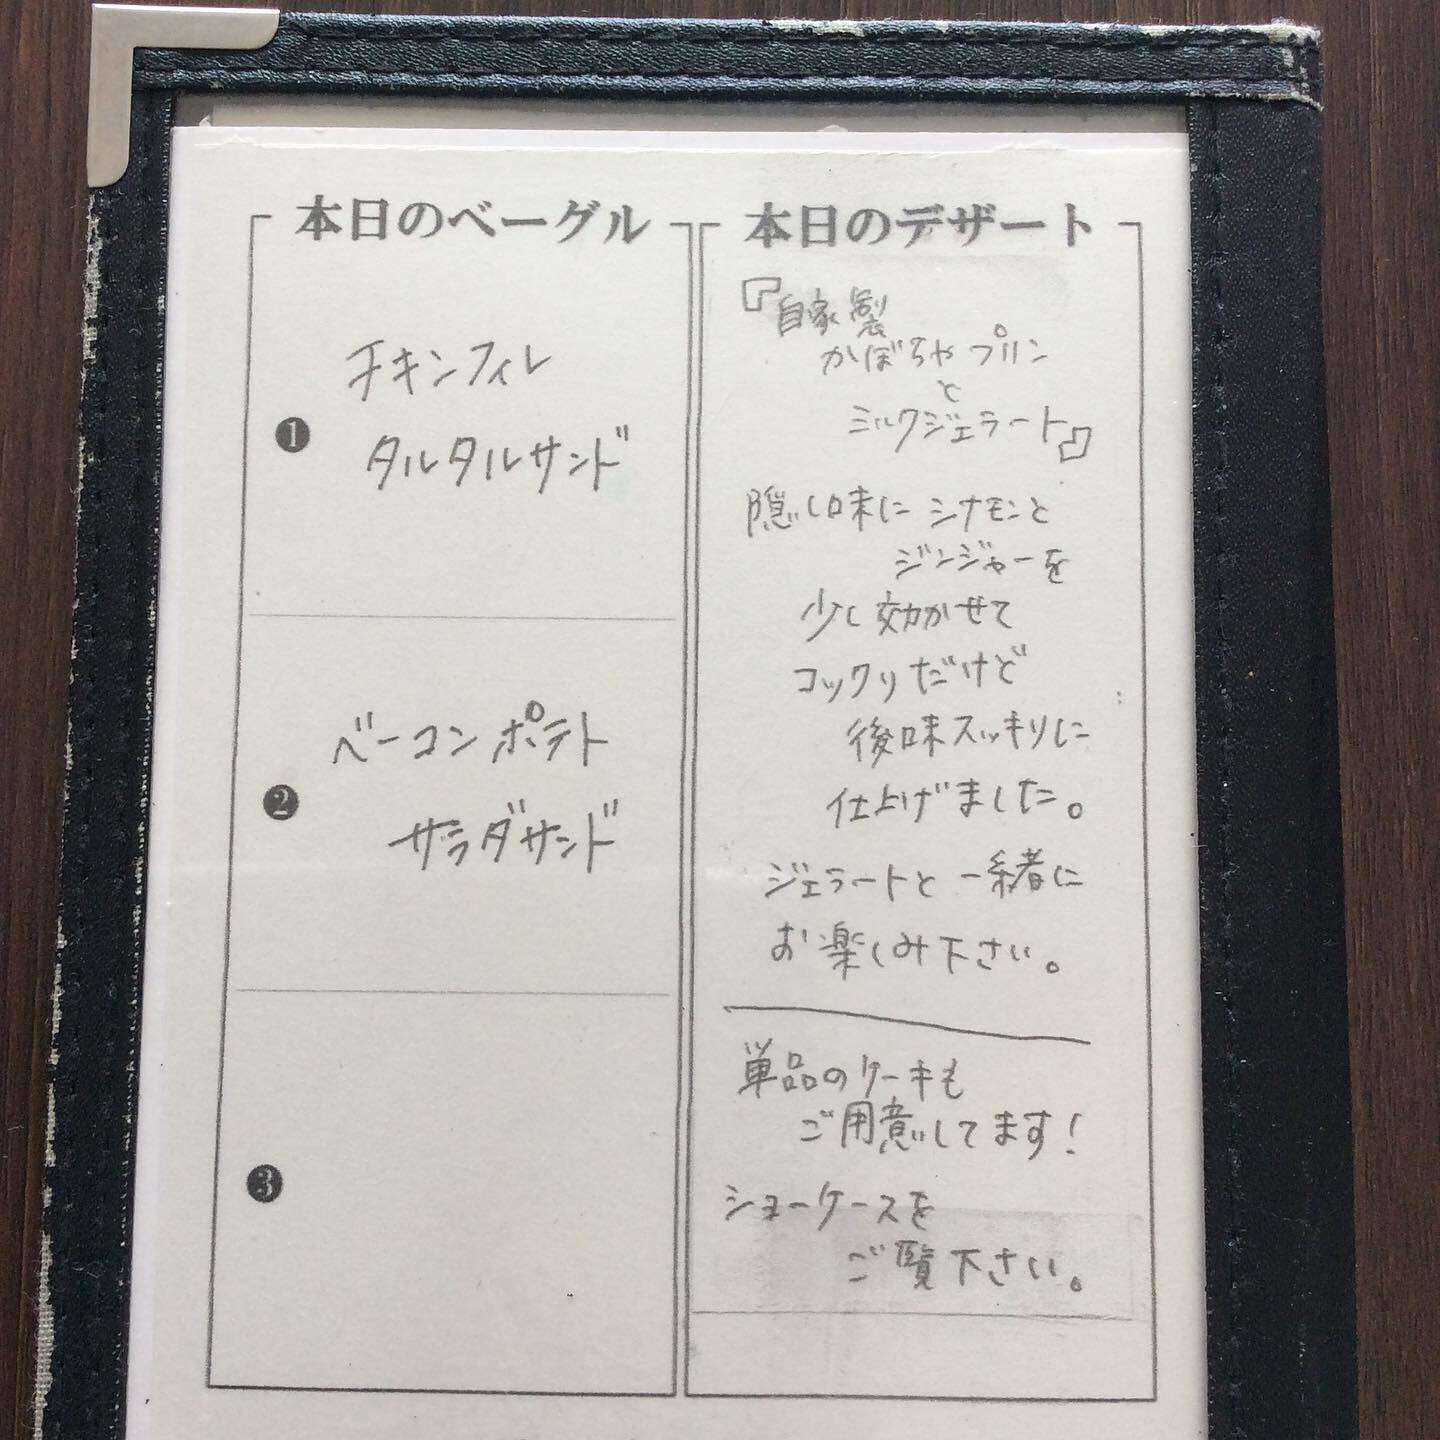 本日のベーグル
❶
チキンフィレ
タルタルサンド
❷
ベーコンポテト
サラダサンド
❸
本日のデザート
『自家製
かぼちゃプリン
と
ミルクジェラート』
隠し味にシナモンと
ジンジャーを
少し効かせて
コックリだけど
後味スッキリに
仕上げました。
ジェラートと一緒に
お楽しみ下さい。
単品のケーキも
ご用意してます!
ショーケースを
ご覧下さい。